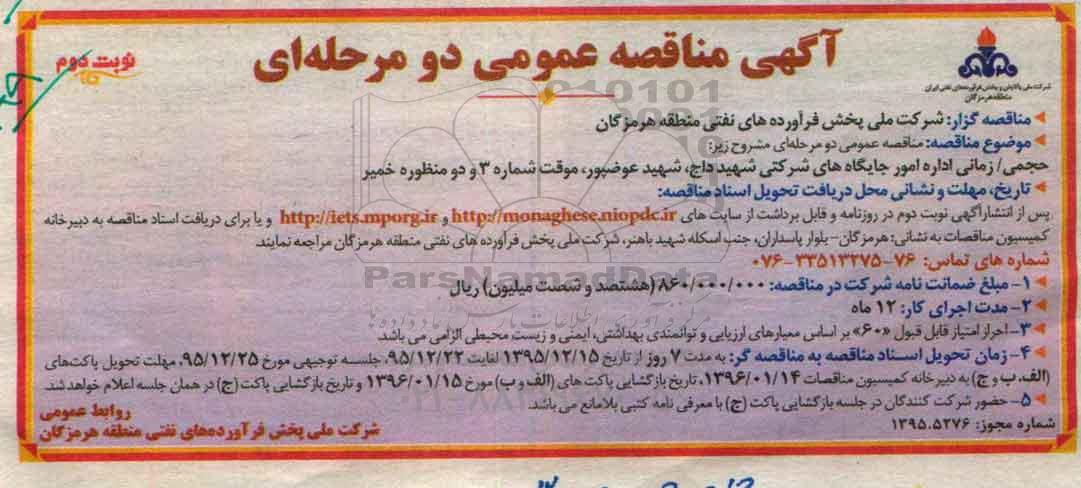 آگهی مناقصه عمومی دو مرحله‌ای
نوبت دوم
شرکت ملی پالایش و پخش فرآورده‌های نفتی ایران
منطقه هرمزگان
مناقصه گزار: شرکت ملی پخش فرآورده های نفتی منطقه هرمزگان
موضوع مناقصه: مناقصه عمومی دو مرحله‌ای مشروح زیر:
حجمی/ زمانی اداره امور جایگاه های شرکتی شهید داج، شهید عوضپور، موقت شماره ۳ و دو منظوره خمیر
تاریخ، مهلت و نشانی محل دریافت تحویل اسناد مناقصه:
پس از انتشار آگهی نوبت دوم در روزنامه و قابل برداشت از سایت های http://monaghese.niopdc.ir و http://iets.mporg.ir و یا برای دریافت اسناد مناقصه به دبیرخانه
کمیسیون مناقصات به نشانی: هرمزگان- بلوار پاسداران، جنب اسکله شهید باهنر، شرکت ملی پخش فرآورده های نفتی منطقه هرمزگان مراجعه نمایند.
شماره های تماس: ۷۶-۳۳۵۱۳۲۷۵-۰۷۶
۱- مبلغ ضمانت نامه شرکت در مناقصه: ۸۶۰/۰۰۰/۰۰۰ (هشتصد و شصت میلیون) ریال
۲- مدت اجرای کار: ۱۲ ماه
۳- احراز امتیاز قابل قبول «۶۰» بر اساس معیارهای ارزیابی و توانمندی بهداشتی، ایمنی و زیست محیطی الزامی می باشد.
۴- زمان تحویل اسناد مناقصه به مناقصه گر: به مدت ۷ روز از تاریخ ۱۳۹۵/۱۲/۱۵ لغایت ۹۵/۱۲/۲۲، جلسه توجیهی مورخ ۹۵/۱۲/۲۵، مهلت تحویل پاکت‌های
(الف، ب و ج) به دبیرخانه کمیسیون مناقصات ۱۳۹۶/۰۱/۱۴، تاریخ بازگشایی پاکت های (الف و ب) مورخ ۱۳۹۶/۰۱/۱۵ و تاریخ بازگشایی پاکت (ج) در همان جلسه اعلام خواهد شد.
۵- حضور شرکت کنندگان در جلسه بازگشایی پاکت (ج) با معرفی نامه کتبی بلامانع می باشد.
شماره مجوز: ۱۳۹۵.۵۲۷۶
روابط عمومی
شرکت ملی پخش فرآورده‌های نفتی منطقه هرمزگان
ParsNamadData